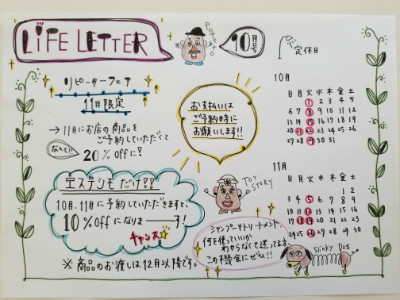 LIFE LETTER
10月号
定休日
リピーターフェア
11月限定
→11月にお店の商品を
ご予約していただくて
なんと!!
20%offに?
お支払いは
ご予約時に
お願いします!!
10月
日月火水木金土
エステシモだけ??
10月、11月に予約していただきますと、
10%OFFになりまーーーす!
チャンス☆
※商品のお渡しは12月以降です。
TOY STORY
シャンプーやトリートメント
何を使っていいか
わからなくて迷ってる方
この機会にぜひ!!
11月
日月火水木金土
1 2
3 4 5 6 7 8 9
10 11 12 13 14 15 16
17 18 19 20 21 22 23
24 25 26 27 28 29 30
Slinky Dog